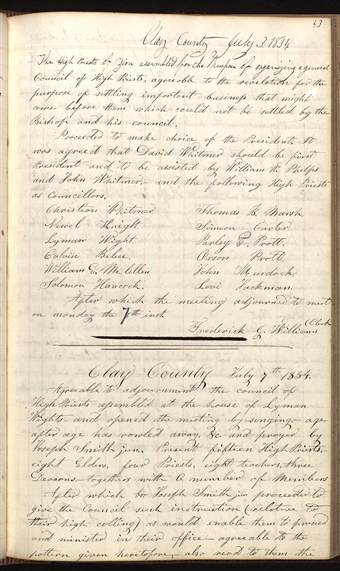 43
Clay County July 3 1834
The High Priests of Zion assembled for the Purpose of organizing a general
Council of High Priests, agreeable to the revelation for the
purpose of settling important business that might
come before them which could not be settled by the
Bishop and his council.
Proceeded to make choice of the President. It
was agreed that David Whitmer should be first
President and to be assisted by William W. Phelps
and John Whitmer. and the following High Priests
as councillors.
Christian Whitmer Thomas B. Marsh
Newel Knight. Simeon Carter
Lyman Wight. Parley P. Pratt.
Calvin Bebee. Orson Pratt.
William E. M. Lellin John Murdock
Solomon Hancock. Levi Jackman.
After which the meeting adjourned to meet
on monday the 7th inst
Frederick G. Williams Clerk
Clay County July 7th 1834.
Agreeable to adjournment the council of
High Priests assembled at the house of Lyman
Wights and opened the meeting by singing. age
after age has rowled away, &c and prayer by
Joseph Smith jun. Present fifteen High Priests,
eight Elders, four Priests, eight teachers, three
Deacons together with a number of Members
After which br Joseph Smith jr proceeded to
give the Council such instruction (relative to
their high calling) as would enable them to proceed
and minister in their office agreeable to the
pattern given heretofore, also read to them the